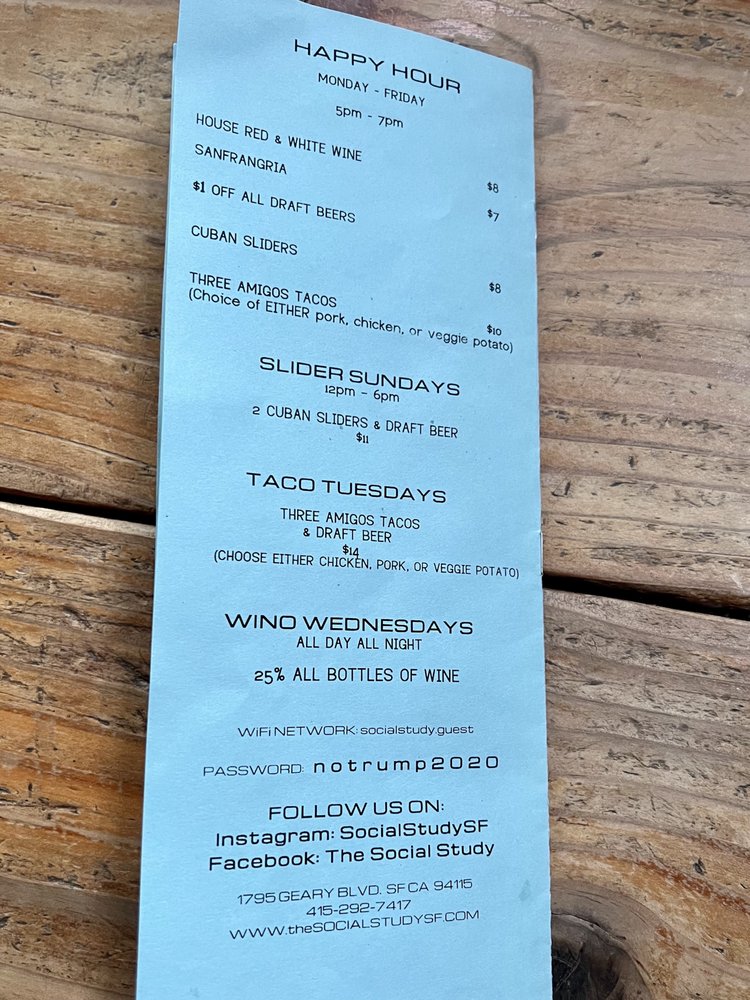 HAPPY HOUR
MONDAY - FRIDAY
5pm - 7pm
HOUSE RED & WHITE WINE $8
SANFRANGRIA $7
$1 OFF ALL DRAFT BEERS
CUBAN SLIDERS $8
THREE AMIGOS TACOS $10
(Choice of EITHER pork, chicken, or veggie potato)
SLIDER SUNDAYS
12pm - 6pm
2 CUBAN SLIDERS & DRAFT BEER
$11
TACO TUESDAYS
THREE AMIGOS TACOS
& DRAFT BEER
$14
(CHOOSE EITHER CHICKEN, PORK, OR VEGGIE POTATO)
WINO WEDNESDAYS
ALL DAY ALL NIGHT
25% ALL BOTTLES OF WINE
WiFi NETWORK: socialstudy.guest
PASSWORD: notrump2020
FOLLOW US ON:
Instagram: SocialStudySF
Facebook: The Social Study
1795 GEARY BLVD. SF CA 94115
415-292-7417
WWW.theSOCIALSTUDYSF.COM